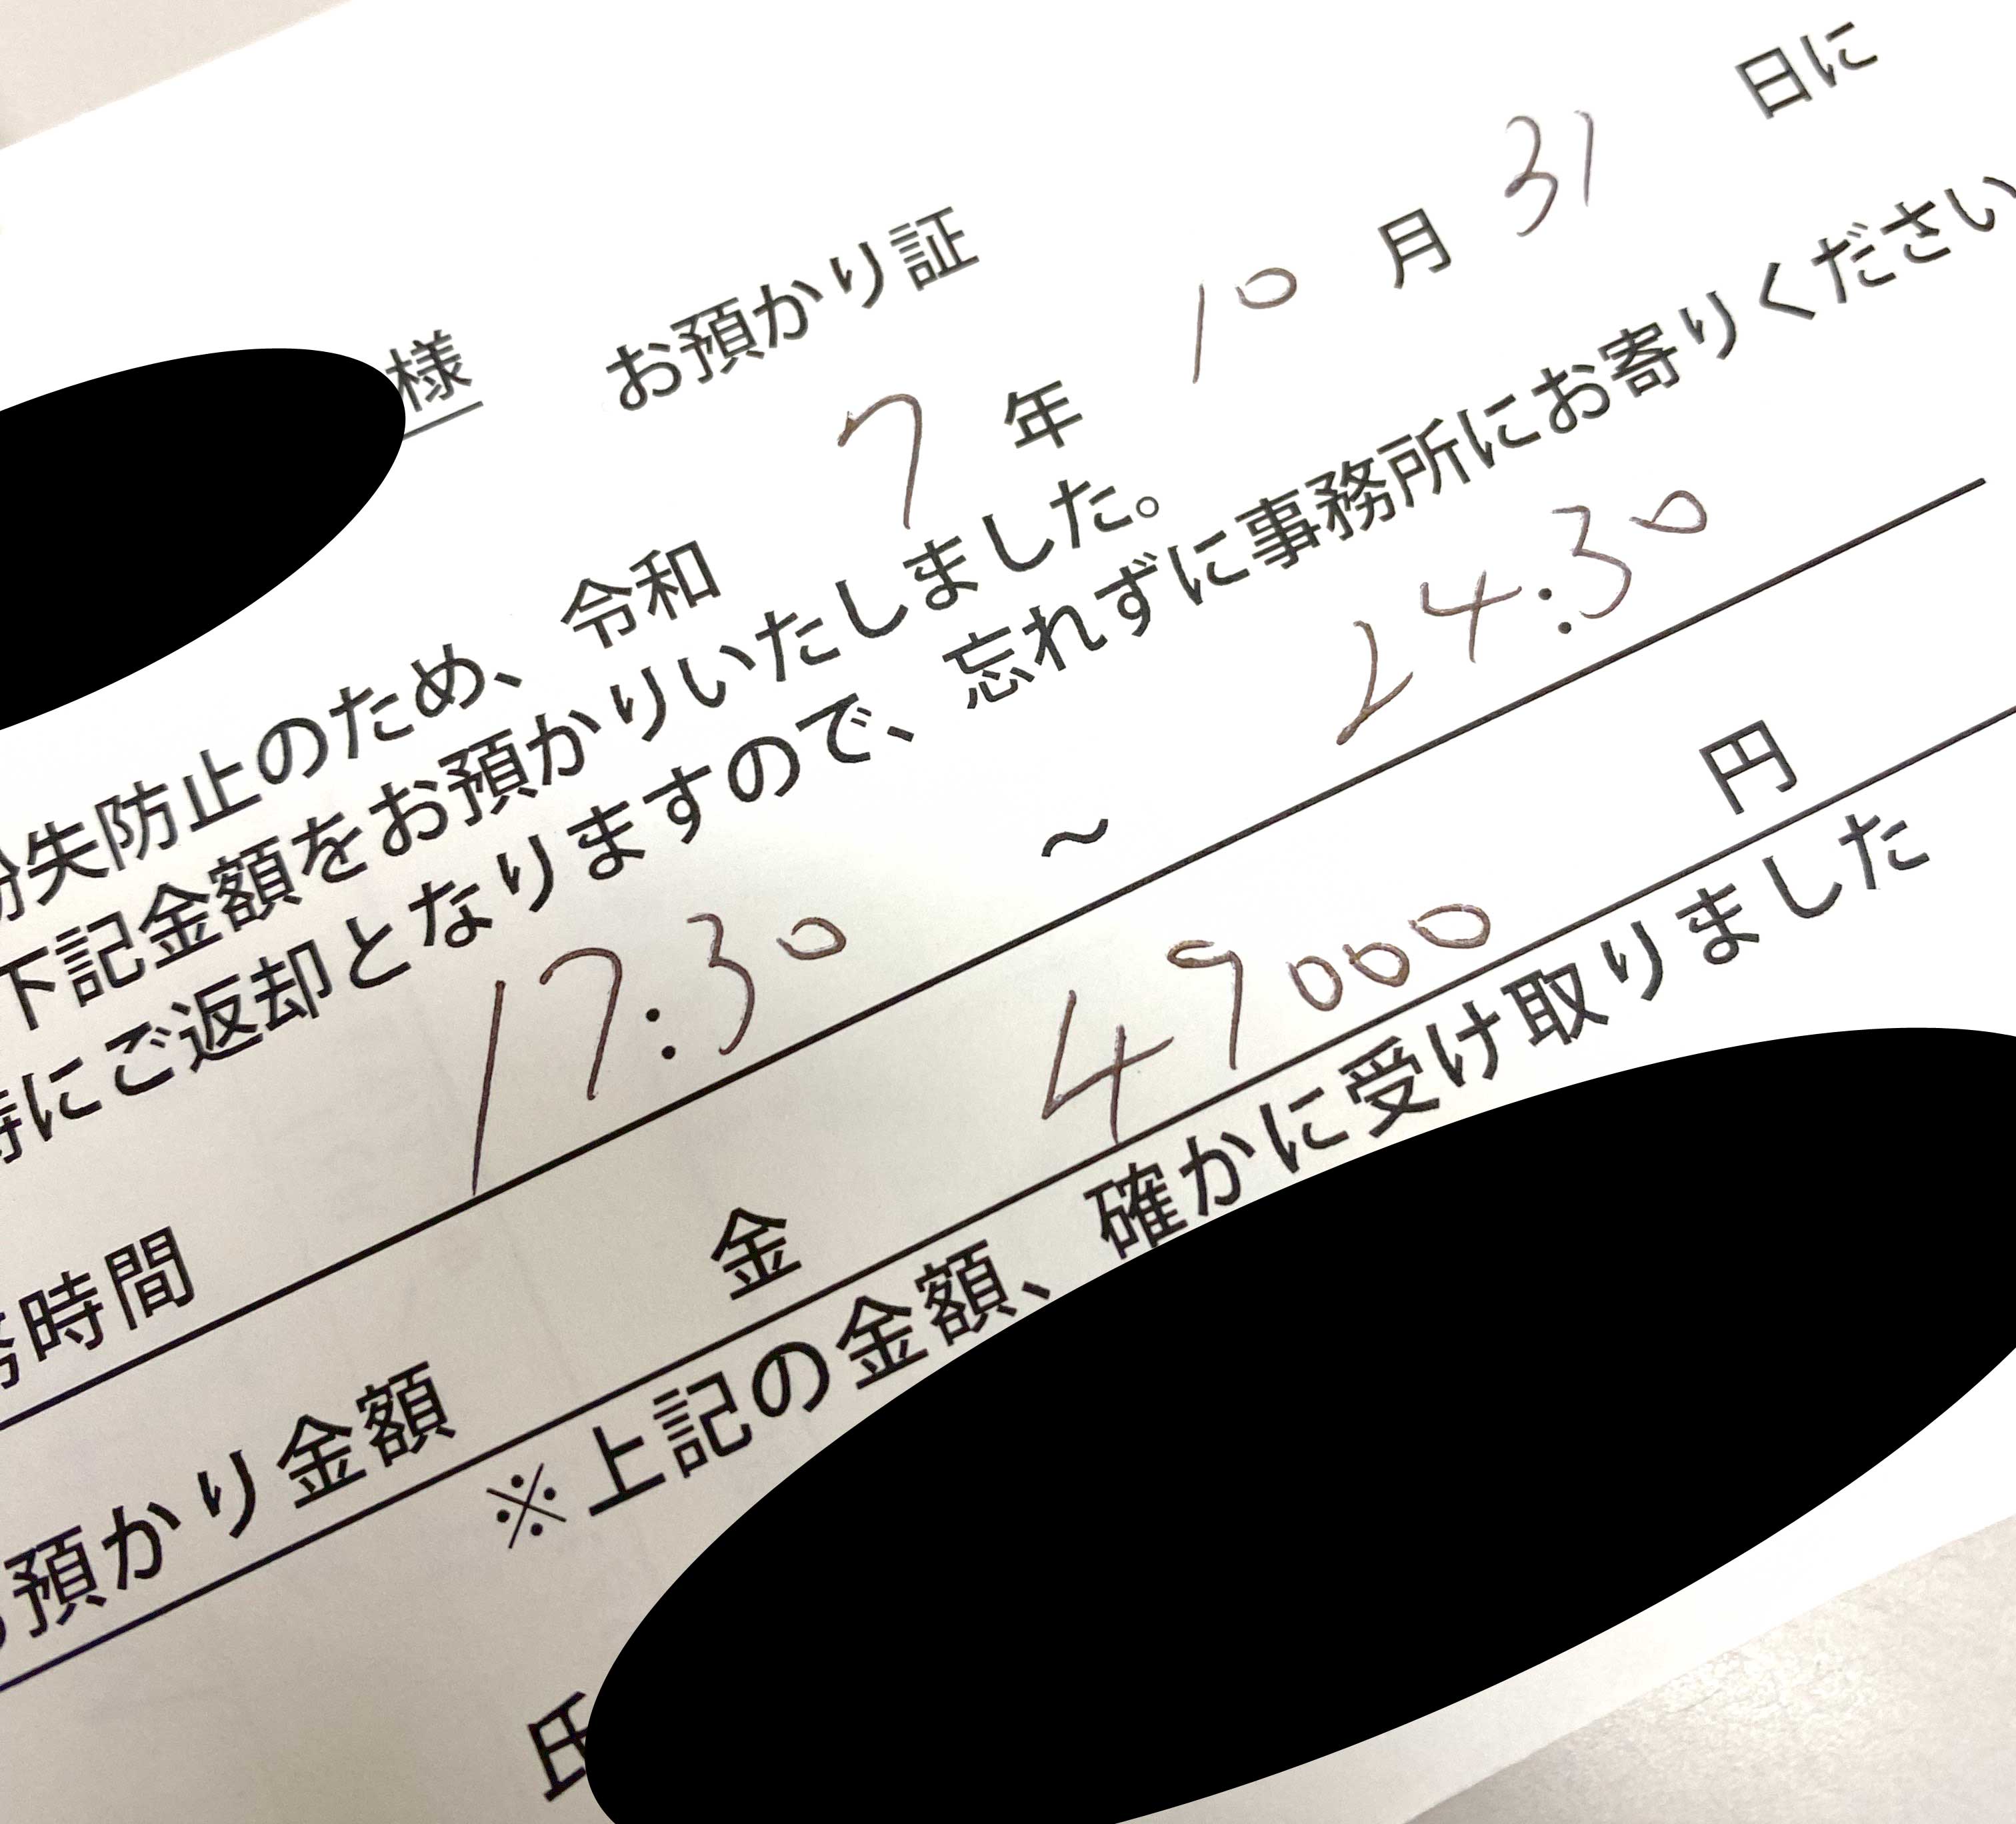 様 お預かり証
紛失防止のため、令和 7 年 10 月 31 日に
下記金額をお預かりいたしました。
時にご返却となりますので、忘れずに事務所にお寄りください
時間 17:30 ～ 24:30
お預かり金額 金 49000 円
※上記の金額、確かに受け取りました
氏